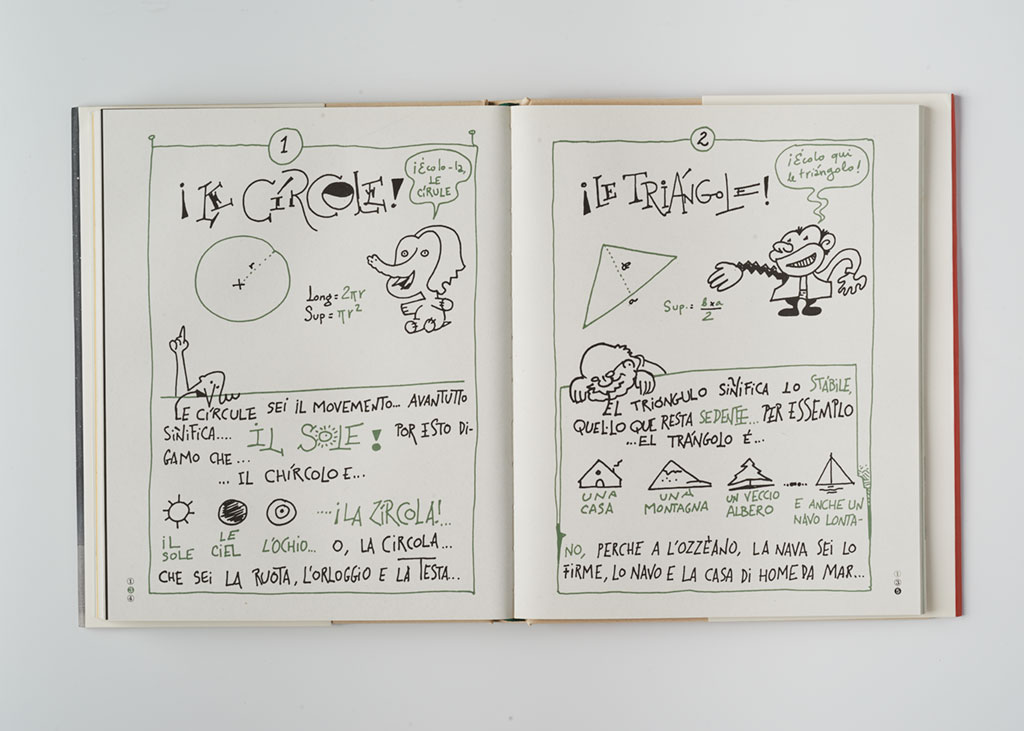 1
¡LE CÍRCOLE!
¡Ècolo-la,
LE
CÍRULE
r
Long = 2πr
Sup = πr²
LE CÍRCULE SEI IL MOVEMENTO... AVANTUTTO
SIÑIFICA.... IL SOLE! POR ESTO DI-
GAMO CHE...
... IL CHÍRCOLO E...
IL
SOLE
LE
CIEL
L'OCHIO...
....¡LA ZÍRCOLA!...
O, LA CIRCOLA...
CHE SEI LA RUOTA, L'ORLOGGIO E LA TESTA...
1
3
4
2
¡LE TRIÁNGOLE!
¡Écolo qui
le triángolo!
b
a
Sup. = bxa/2
EL TRIÓNGULO SIÑIFICA LO STÁBILE,
QUEL·LO QUE RESTA SEDENTE... PER ESSEMPLO
...EL TRÁNGOLO É...
UNA
CASA
UNA
MONTAGNA
UN VECCIO
ALBERO
.....
E ANCHE UN
NAVO LONTA-
NO, PERCHE A L'OZZÈANO, LA NAVA SEI LO
FIRME, LO NAVO E LA CASA DI HOME DA MAR...
1
3
5